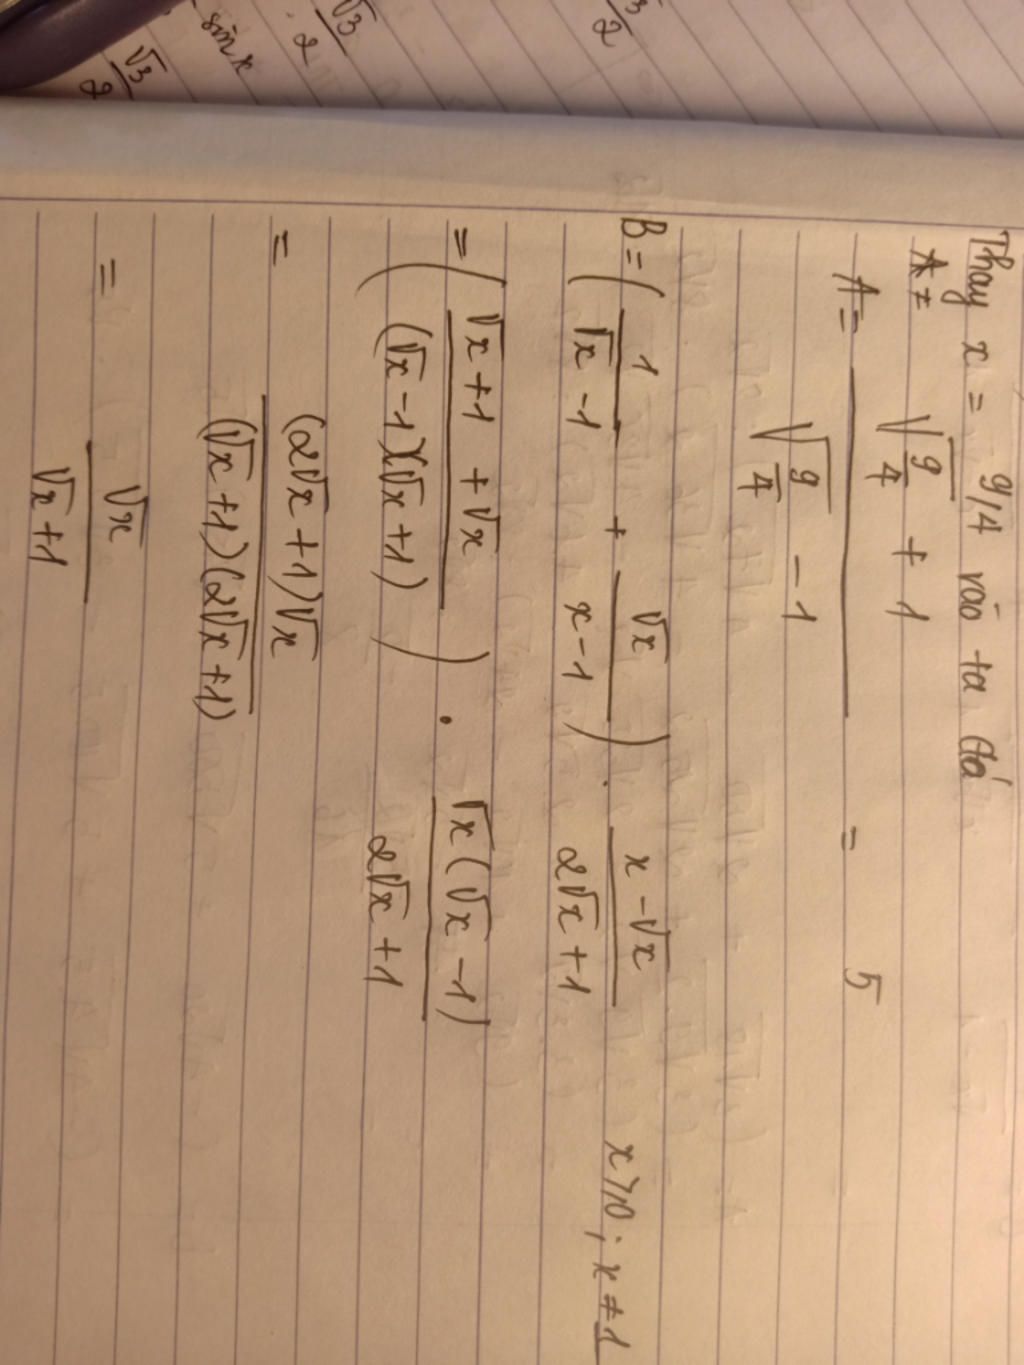 √3/2
sin x
. √3/2
√3/2
Thay x = 9/4 vào ta đc
A =
A = (√(9/4) + 1)/(√(9/4) - 1) = 5
B = (1/(√x - 1) + √x/(x - 1)) . (x - √x)/(2√x + 1) x ≥ 0 ; x ≠ 1
= ((√x + 1 + √x)/((√x - 1)(√x + 1))) . (√x(√x - 1))/(2√x + 1)
= ((2√x + 1)√x)/((√x + 1)(2√x + 1))
= √x/(√x + 1)